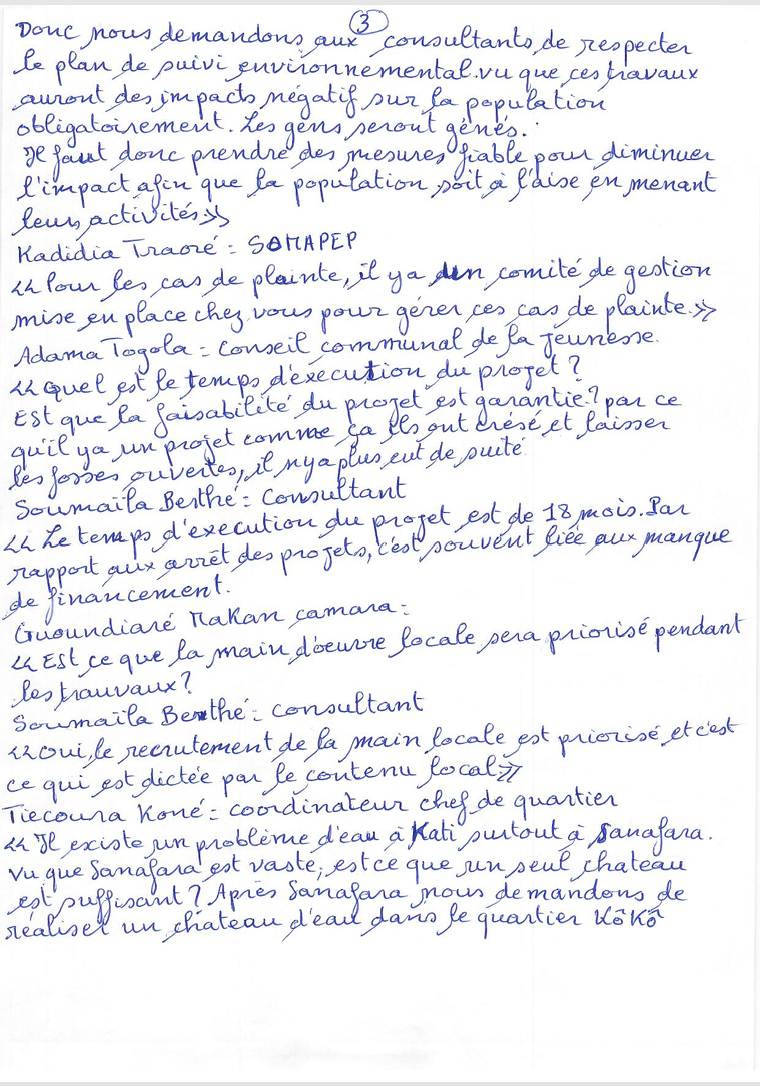 3
Donc nous demandons aux consultants de respecter
le plan de suivi environnemental. vu que ces travaux
auront des impacts négatif sur la population
obligatoirement. Les gens seront génés.
Il faut donc prendre des mesures fiable pour diminuer
l'impact afin que la population soit à l'aise en menant
leurs activités >>
Kadidia Traoré = SOMAPEP
<< Pour les cas de plainte, il ya un comité de gestion
mise en place chez vous pour gérer ces cas de plainte. >>
Adama Togola = Conseil communal de la jeunesse.
<< quel est le temps d'execution du projet ?
Est que la faisabilité du projet est garantie ? par ce
qu'il ya un projet comme ça ils ont crésé et laisser
les fosses ouvertes, il n'ya plus eut de suité
Soumaïla Berthé = Consultant
<< Le temps d'execution du projet est de 18 mois. Par
rapport aux arrêt des projets, c'est souvent liée aux manque
de financement.
Guoundiaré Makan camara =
<< Est ce que la main d'oeuvre locale sera priorisé pendant
les trauvaux ?
Soumaïla Berthé = consultant
<< oui, le recrutement de la main locale est priorisé et c'est
ce qui est dictée par le contenu local >>
Tiecoura Koné = coordinateur chef de quartier
<< Il existe un problème d'eau à Kati surtout à Sanafara.
Vu que Sanafara est vaste, est ce que un seul chateau
est suffisant ? Après Sanafara nous demandons de
réaliser un château d'eau dans le quartier Kôkô